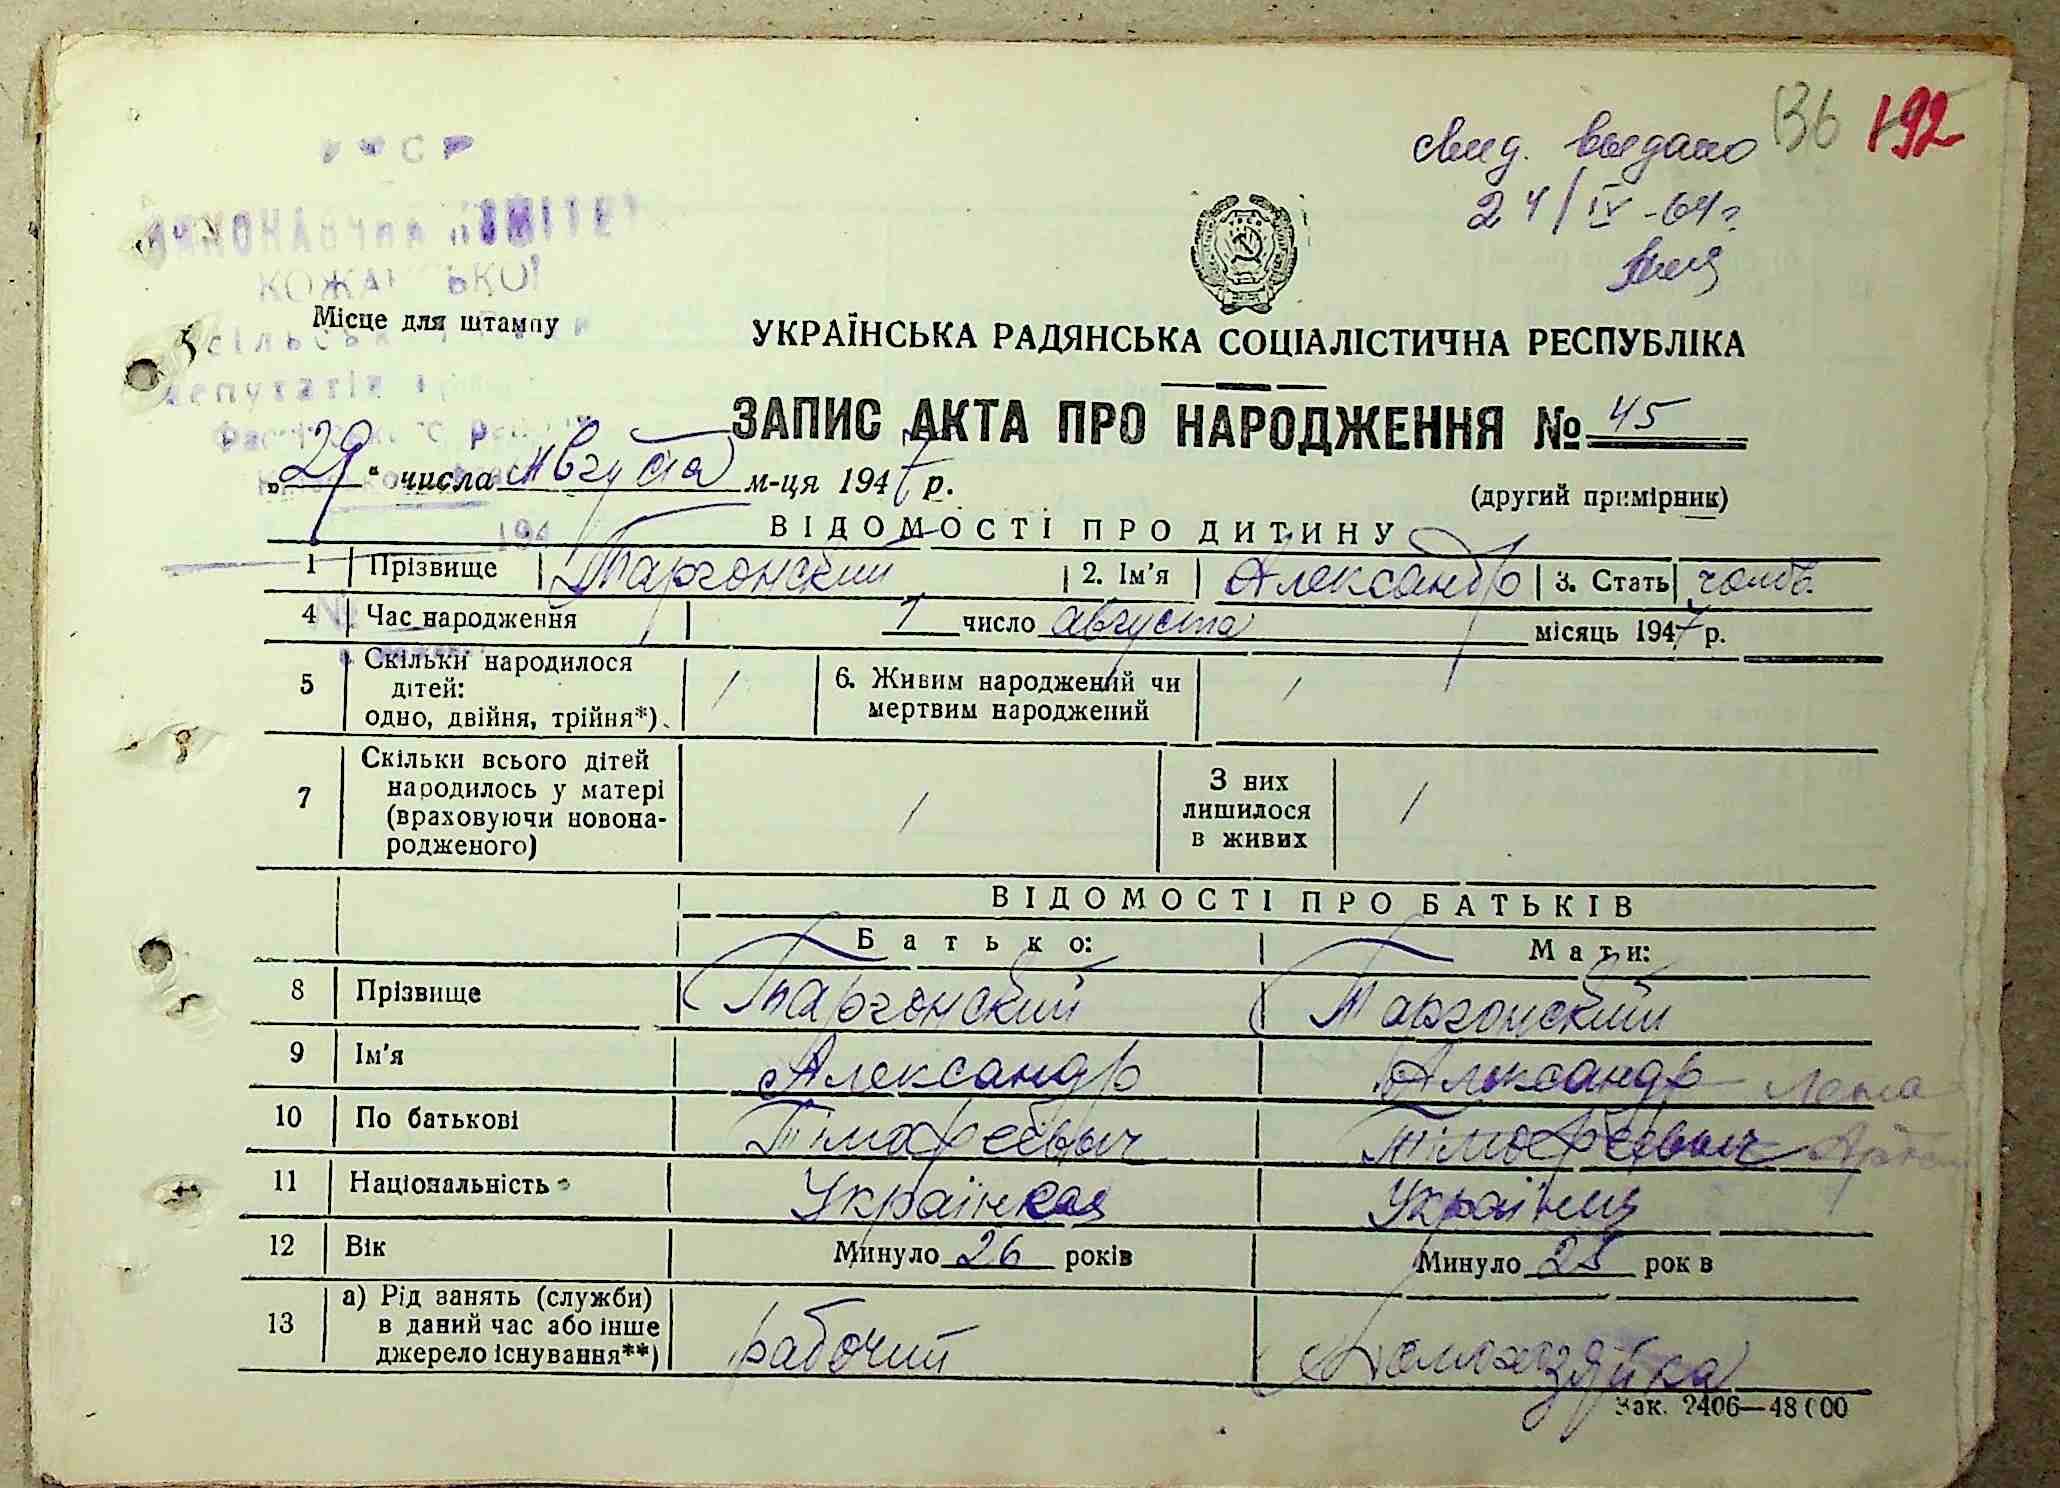 В6 192
свид. выдано
24/IV-64г.
УРСР
КОМІТЕТ
Місце для штампу
УКРАЇНСЬКА РАДЯНСЬКА СОЦІАЛІСТИЧНА РЕСПУБЛІКА
ЗАПИС АКТА ПРО НАРОДЖЕННЯ № 45
„29“ числа Августа м-ця 1947 р.
(другий примірник)
194
ВІДОМОСТІ ПРО ДИТИНУ
1 Прізвище Таргонский 2. Ім'я Александр 3. Стать
4 Час народження 1 число августа місяць 1947 р.
5 Скільки народилося дітей: одно, двійня, трійня*) 1 6. Живим народжений чи мертвим народжений 1
7 Скільки всього дітей народилось у матері (враховуючи новонародженого) 1 З них лишилося в живих 1
ВІДОМОСТІ ПРО БАТЬКІВ
Батько: Мати:
8 Прізвище Таргонский Таргонский
9 Ім'я Александр Александр
10 По батькові Тімофеевич Тімофеевич
11 Національність
12 Вік Минуло 26 років Минуло 25 рок в
13 а) Рід занять (служби) в даний час або інше джерело існування**) рабочий Домохазяйка
Зак. 2406—48000